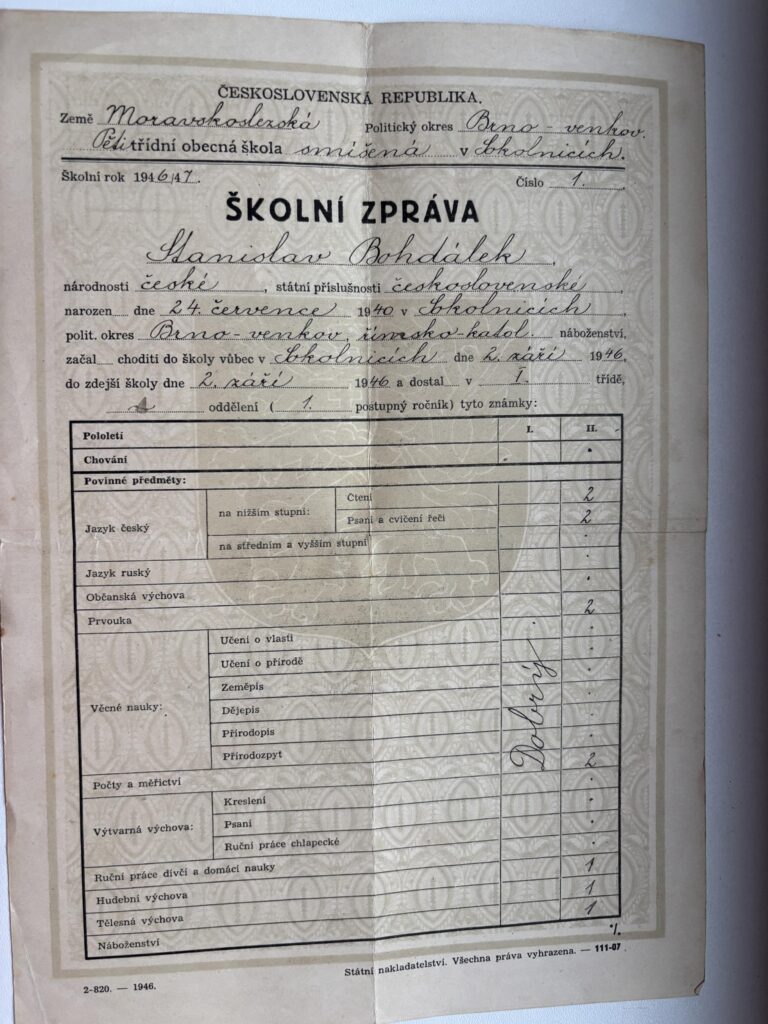 ČESKOSLOVENSKÁ REPUBLIKA.
Země Moravskoslezská Politický okres Brno-venkov.
Pětitřídní obecná škola smíšená v Sokolnicích.
Školní rok 1946/47. Číslo 1.
ŠKOLNÍ ZPRÁVA
Stanislav Bohdálek,
národnosti české, státní příslušnosti československé,
narozen dne 24. července 1940 v Sokolnicích,
polit. okres Brno-venkov, římsko-katol. náboženství,
začal choditi do školy vůbec v Sokolnicích dne 2. září 1946,
do zdejší školy dne 2. září 1946 a dostal v I. třídě,
oddělení ( 1. postupný ročník) tyto známky:
Pololetí I. II.
Chování
Povinné předměty:
Jazyk český na nižším stupni: Čtení 2
Psaní a cvičení řeči 2
na středním a vyšším stupni
Jazyk ruský
Občanská výchova
Prvouka 2
Věcné nauky: Učení o vlasti
Učení o přírodě
Zeměpis
Dějepis
Přírodopis
Přírodozpyt
Dobrý.
Počty a měřictví 2
Výtvarná výchova: Kreslení
Psaní
Ruční práce chlapecké
Ruční práce dívčí a domácí nauky
Hudební výchova 1
Tělesná výchova 1
Náboženství 1
Státní nakladatelství. Všechna práva vyhrazena. — 111-07
2-820. — 1946.